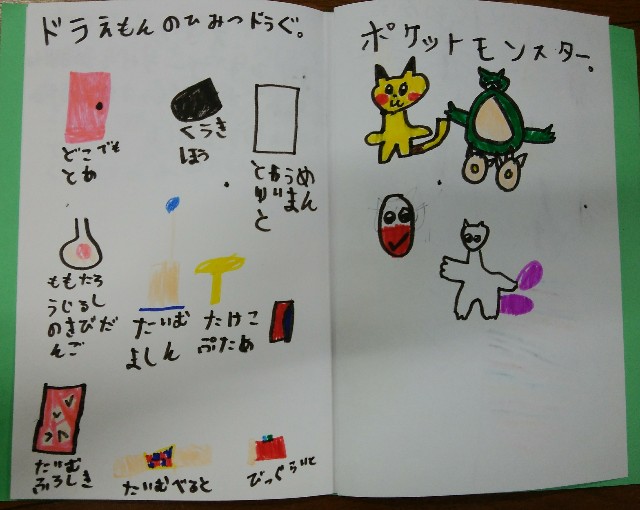 ドラえもんのひみつドうぐ。
どこでも
とあ
くうき
ほう
とおうめ
ゆじまん
と
ももたろ
うじるし
のきびだ
んご
たいむ
ましん
たけこ
ぷため
たいむ
ふろしき
たいむべると
びっぐらいと
ポケットモンスター。